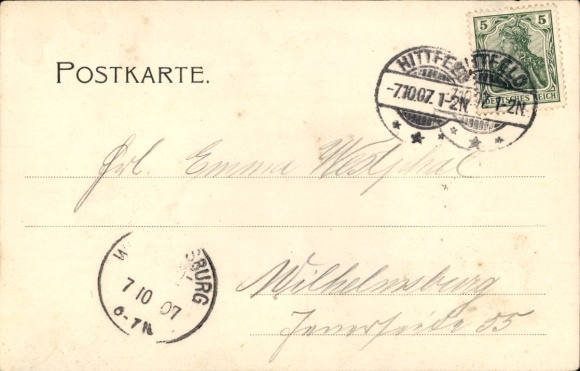 POSTKARTE.
5 5
DEUTSCHES REICH
HITTFELD
-7.10.07. 1-2N.
HITTFELD
7.10.07. 1-2N.
Frl. Emma Westphal
7 10 07
6-7N
Wilhelmsburg
55